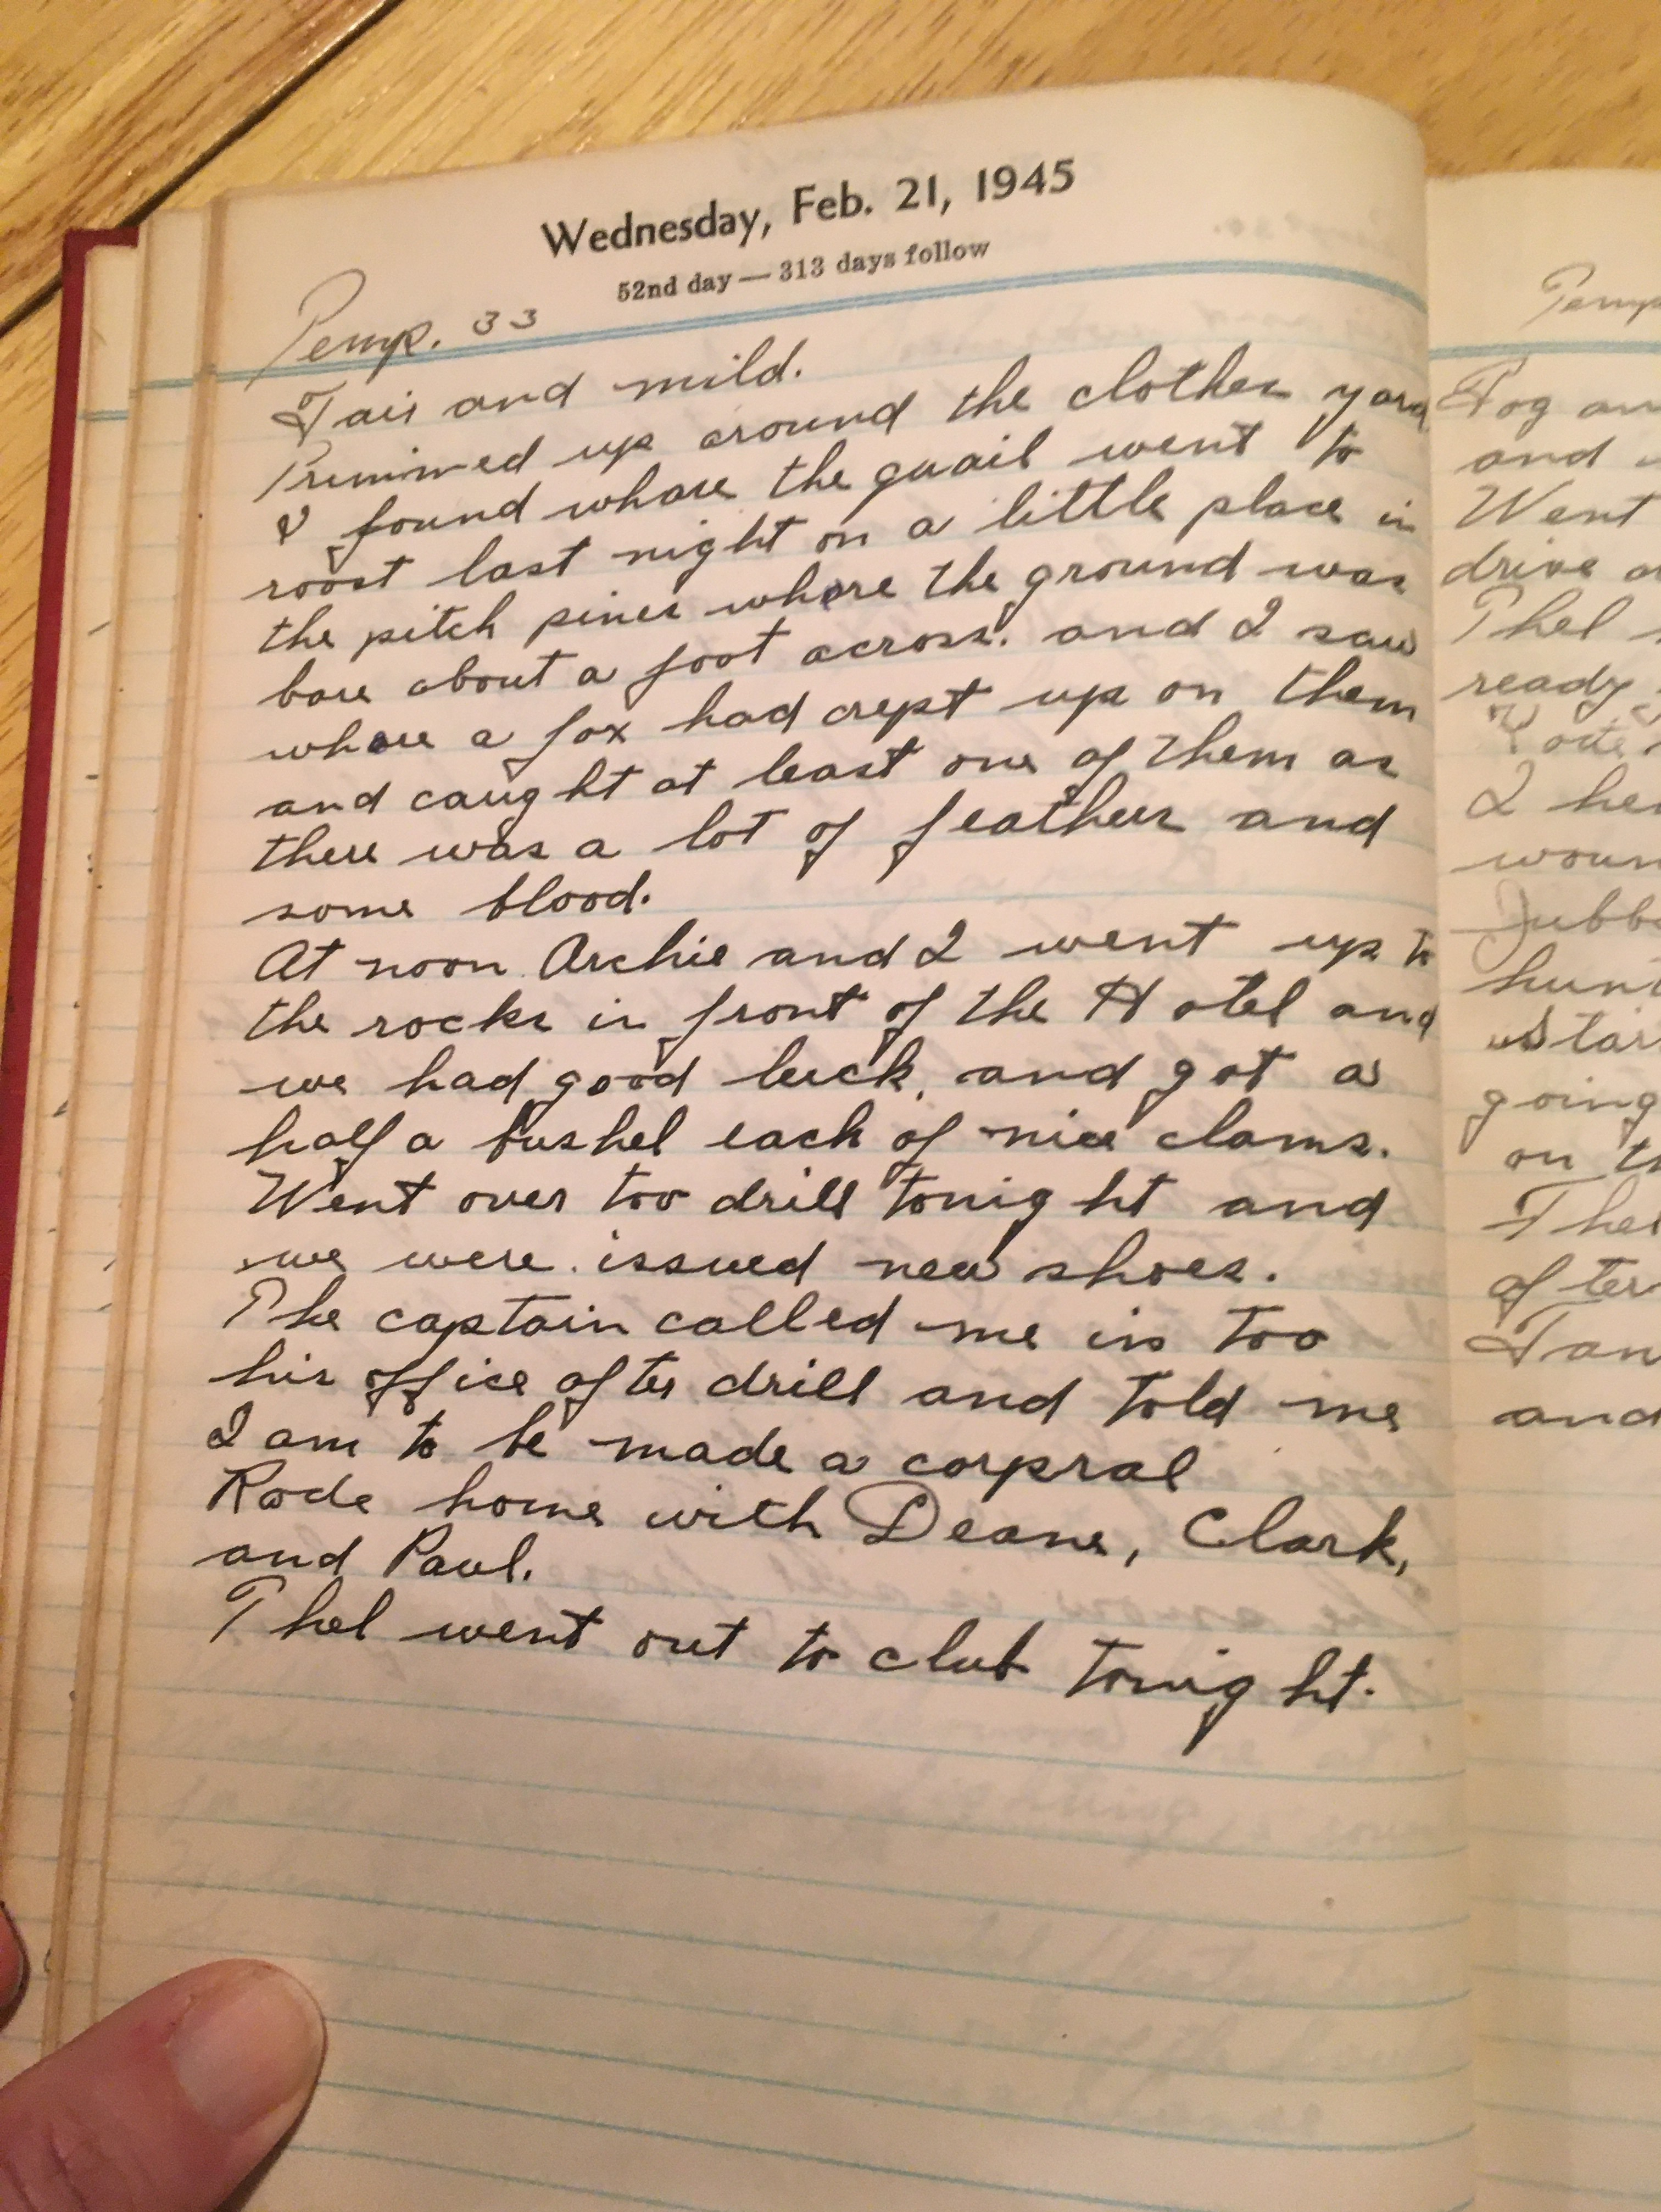 Wednesday, Feb. 21, 1945
52nd day — 313 days follow
Temp. 33
Fair and mild.
Primmed up around the clothes yard
I found whare the quail went to
roost last night on a little place in
the pitch pines whare the ground was
bare about a foot across. and I saw
whare a fox had crept up on them
and caught at least one of them as
there was a lot of feathers and
some blood.
At noon Archie and I went up to
the rocks in front of the Hotel and
we had good luck, and got a
half a bushel each of nice clams.
Went over too drill tonight and
we were issued new shoes.
The captain called me in too
his office after drill and told me
I am to be made a corpral
Rode home with Deane, Clark,
and Paul.
Thel went out to club tonight.
Temp
Fog an
and
Went
drive a
Thel
ready
I he
woun
hunt
Star
going
on th
Thel
after
and